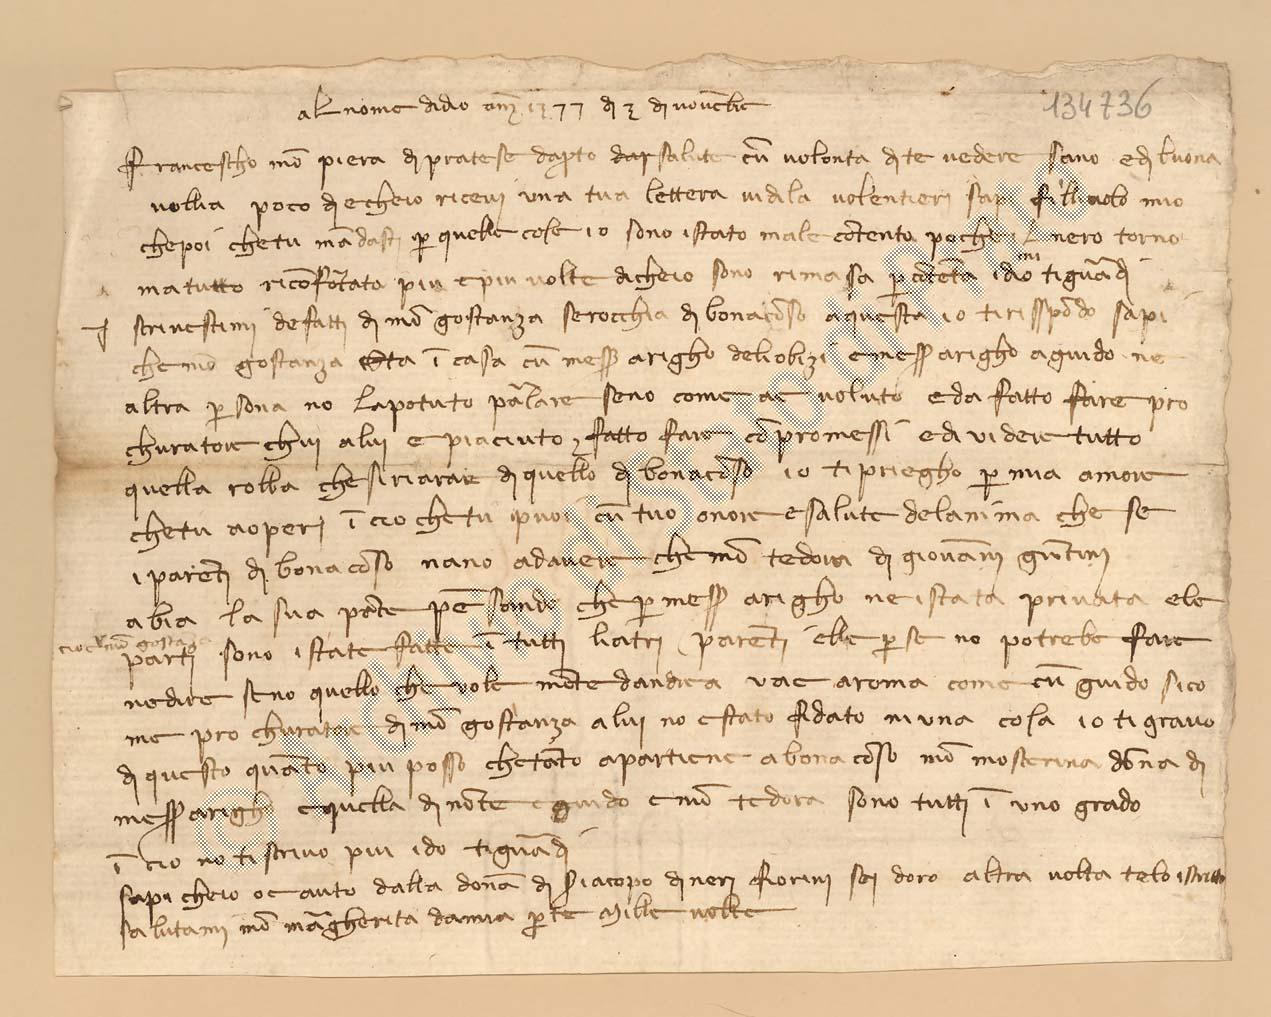 al nome didio anī 1377 di 3 di novēbre
134736
Francescho mō piera di pratese daprto dar salute cū volonta di te vedere sano e di buona
vollia poco di e cheio ricevi una tua lettera vidila volentieri sapi filliuolo mio
chepoi chetu mādasti p quelle cose io sono istato male cōtenta poche l nero torno
ma tutto ricōfōtata piu e piu volte dicheio sono rimasa p cōtēta idio ti guādi
scrivestimi de fatti di mō gostanza serocchia di bonacōso aquesta io ti risspōdo sapi
che mō gostanza sta ī casa cū mess arigho deliobizi e mess arigho a guido ne
altra psona no la potuto pālare seno come ae voluto e da fatto fare pro
churatore chui a lui e piaciuto 7 fatto fare cōpromessi e dividere tutto
quella robba che siriarae di quello di bonacōso io ti priegho p mia amore
chetu aoperi ī cio che tu puoi cū tuo onore e salute delanima che se
i parēti di bonacōso nano adavere che mō tedora di giovāni guntini
abia la sua pāte pē sando che p mess arigho ne istata privata e le
cioe mō gostāza
parti sono istate fatte ī tutti liatri parēti elle p se no potrebe fare
ne dire seno quello che vole mōte dandrea vae aroma come cū guido sico
me pro churatore di mō gostanza a lui no e stato fidato niuna cosa io ti gravo
di questo quāto piu posso che tāto apartiene a bonacōso mō moscerina dōna di
mess arigho e quella di nōte e guido e mō tedora sono tutti ī uno grado
ī cio no ti scrivo piu ido ti guādi
sapi cheio oe auto dalla donā di Siacopo di neri fiorini sei doro altra volta telo iscritto
salutami mō mārgherita da mia pte Mille volte